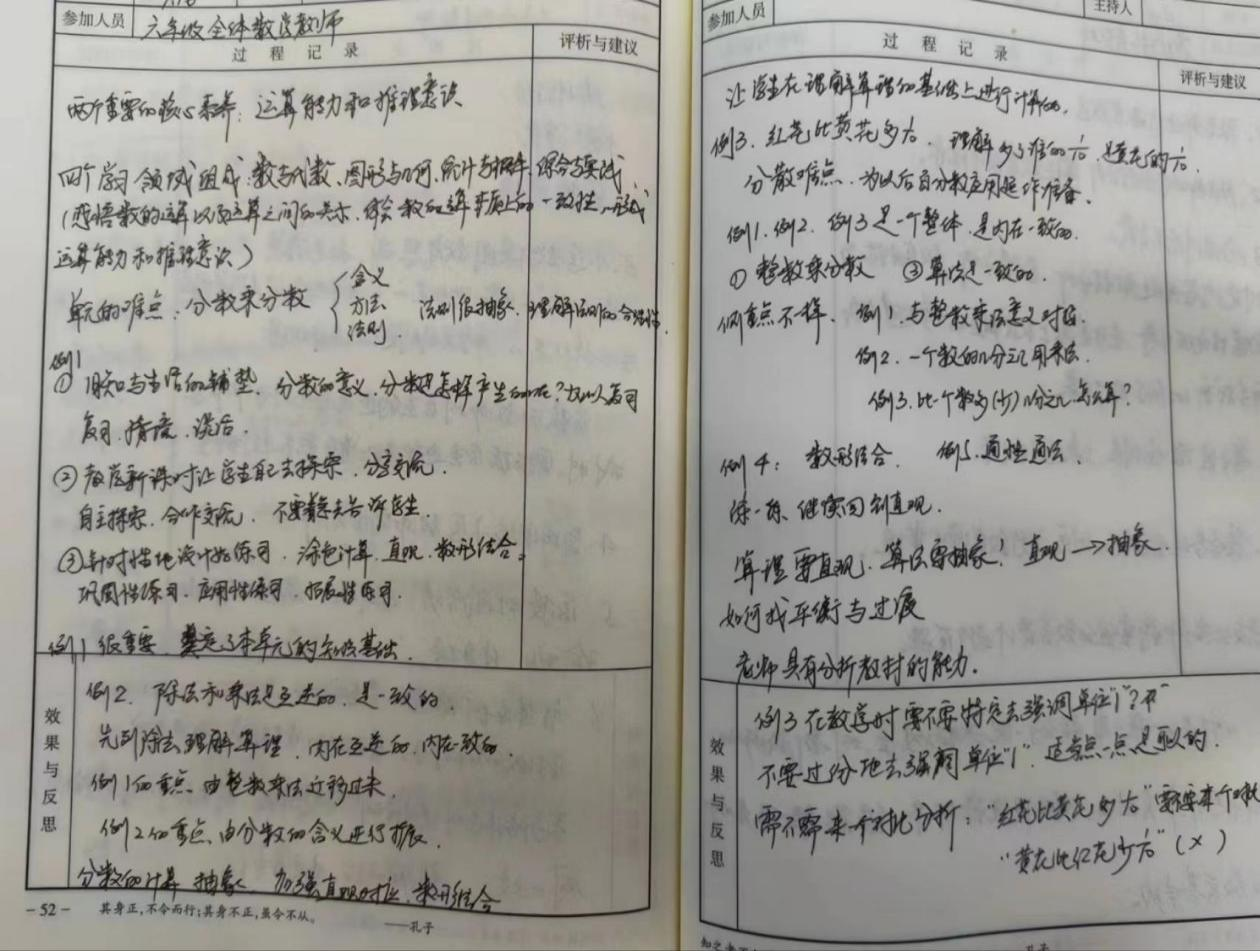 参加人员 六年级全体数学教师
过程记录 评析与建议
两个重要的核心素养：运算能力和推理意识
四个学习领域组成：数与代数、图形与几何、统计与概率、综合与实践
（感悟数的运算以及运算之间的关系，体会数的运算本质上的一致性，形成
运算能力和推理意识）
单元的难点：分数乘分数 { 含义 方法 法则 法则很抽象，理解法则的合理性
例1
① 旧知与生活的铺垫，分数的意义，分数是怎样产生的
复习、情境、
② 教学新课时让学生自己去探索，分享交流。
自主探索，合作交流，不要急着去告诉学生。
③ 针对性地设计练习，涂色计算，直观，数形结合。
巩固性练习，应用性练习，拓展性练习。
例1很重要，奠定了本单元的知识基础。
效果与反思
例2. 除法和乘法是互逆的，是一致的。
先到除去理解算理，内在互逆的，内在一致的。
例1的重点，由整数乘法迁移过来。
例2的重点，由分数的含义进行扩展。
分数的计算 抽象，加强直观对应，数形结合
-52- 其身正，不令而行；其身不正，虽令不从。
——孔子
参加人员 主持人
过程记录 评析与建议
让学生在理解算理的基础上进行计算的。
例3. 红花比黄花多1/10，理解多了谁的1/10，是黄花的1/10
分散难点，为以后的分数应用题作准备。
例1.例2.例3是一个整体，是内在一致的。
① 整数乘分数 ② 算法是一致的。
侧重点不一样，例1. 与整数乘法意义对应
例2. 一个数的几分之几用乘法。
例3. 比一个数多(少)几分之几怎么算？
例4：数形结合， 例5. 通性通法。
练一练，继续回到直观。
算理要直观，算法要抽象，直观→抽象。
如何找平衡与过渡
老师具有分析教材的能力。
效果与反思
例3在教学时需不要特定去强调单位"1"？
不要过份地去强调单位"1"，
需不需来一个对比分析："红花比黄花多1/10"需不要来个对比
"黄花比红花少1/10"（×）
孔子